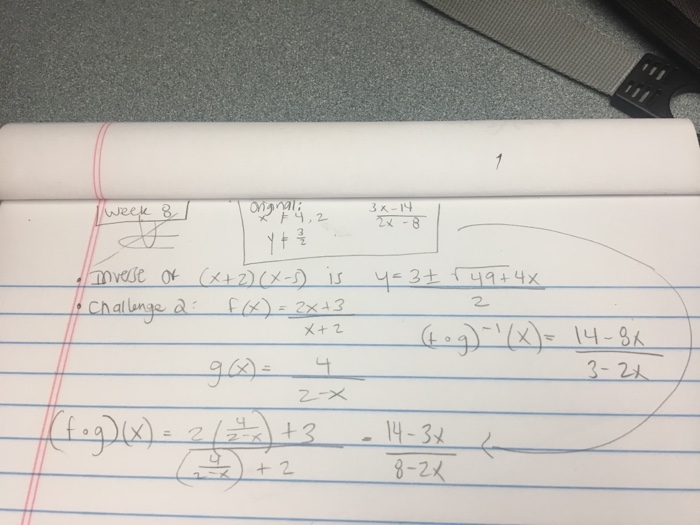 1
Week 8
Original:
x ≠ 4, 2
y ≠ 3/2
3x-14 / 2x-8
• Inverse of (x+2)(x-5) is y = 3 ± √49+4x / 2
• Challenge 2: f(x) = 2x+3 / x+2
(f∘g)⁻¹(x) = 14-8x / 3-2x
g(x) = 4 / 2-x
(f∘g)(x) = 2(4/2-x) + 3 / (4/2-x) + 2 = 14-3x / 8-2x